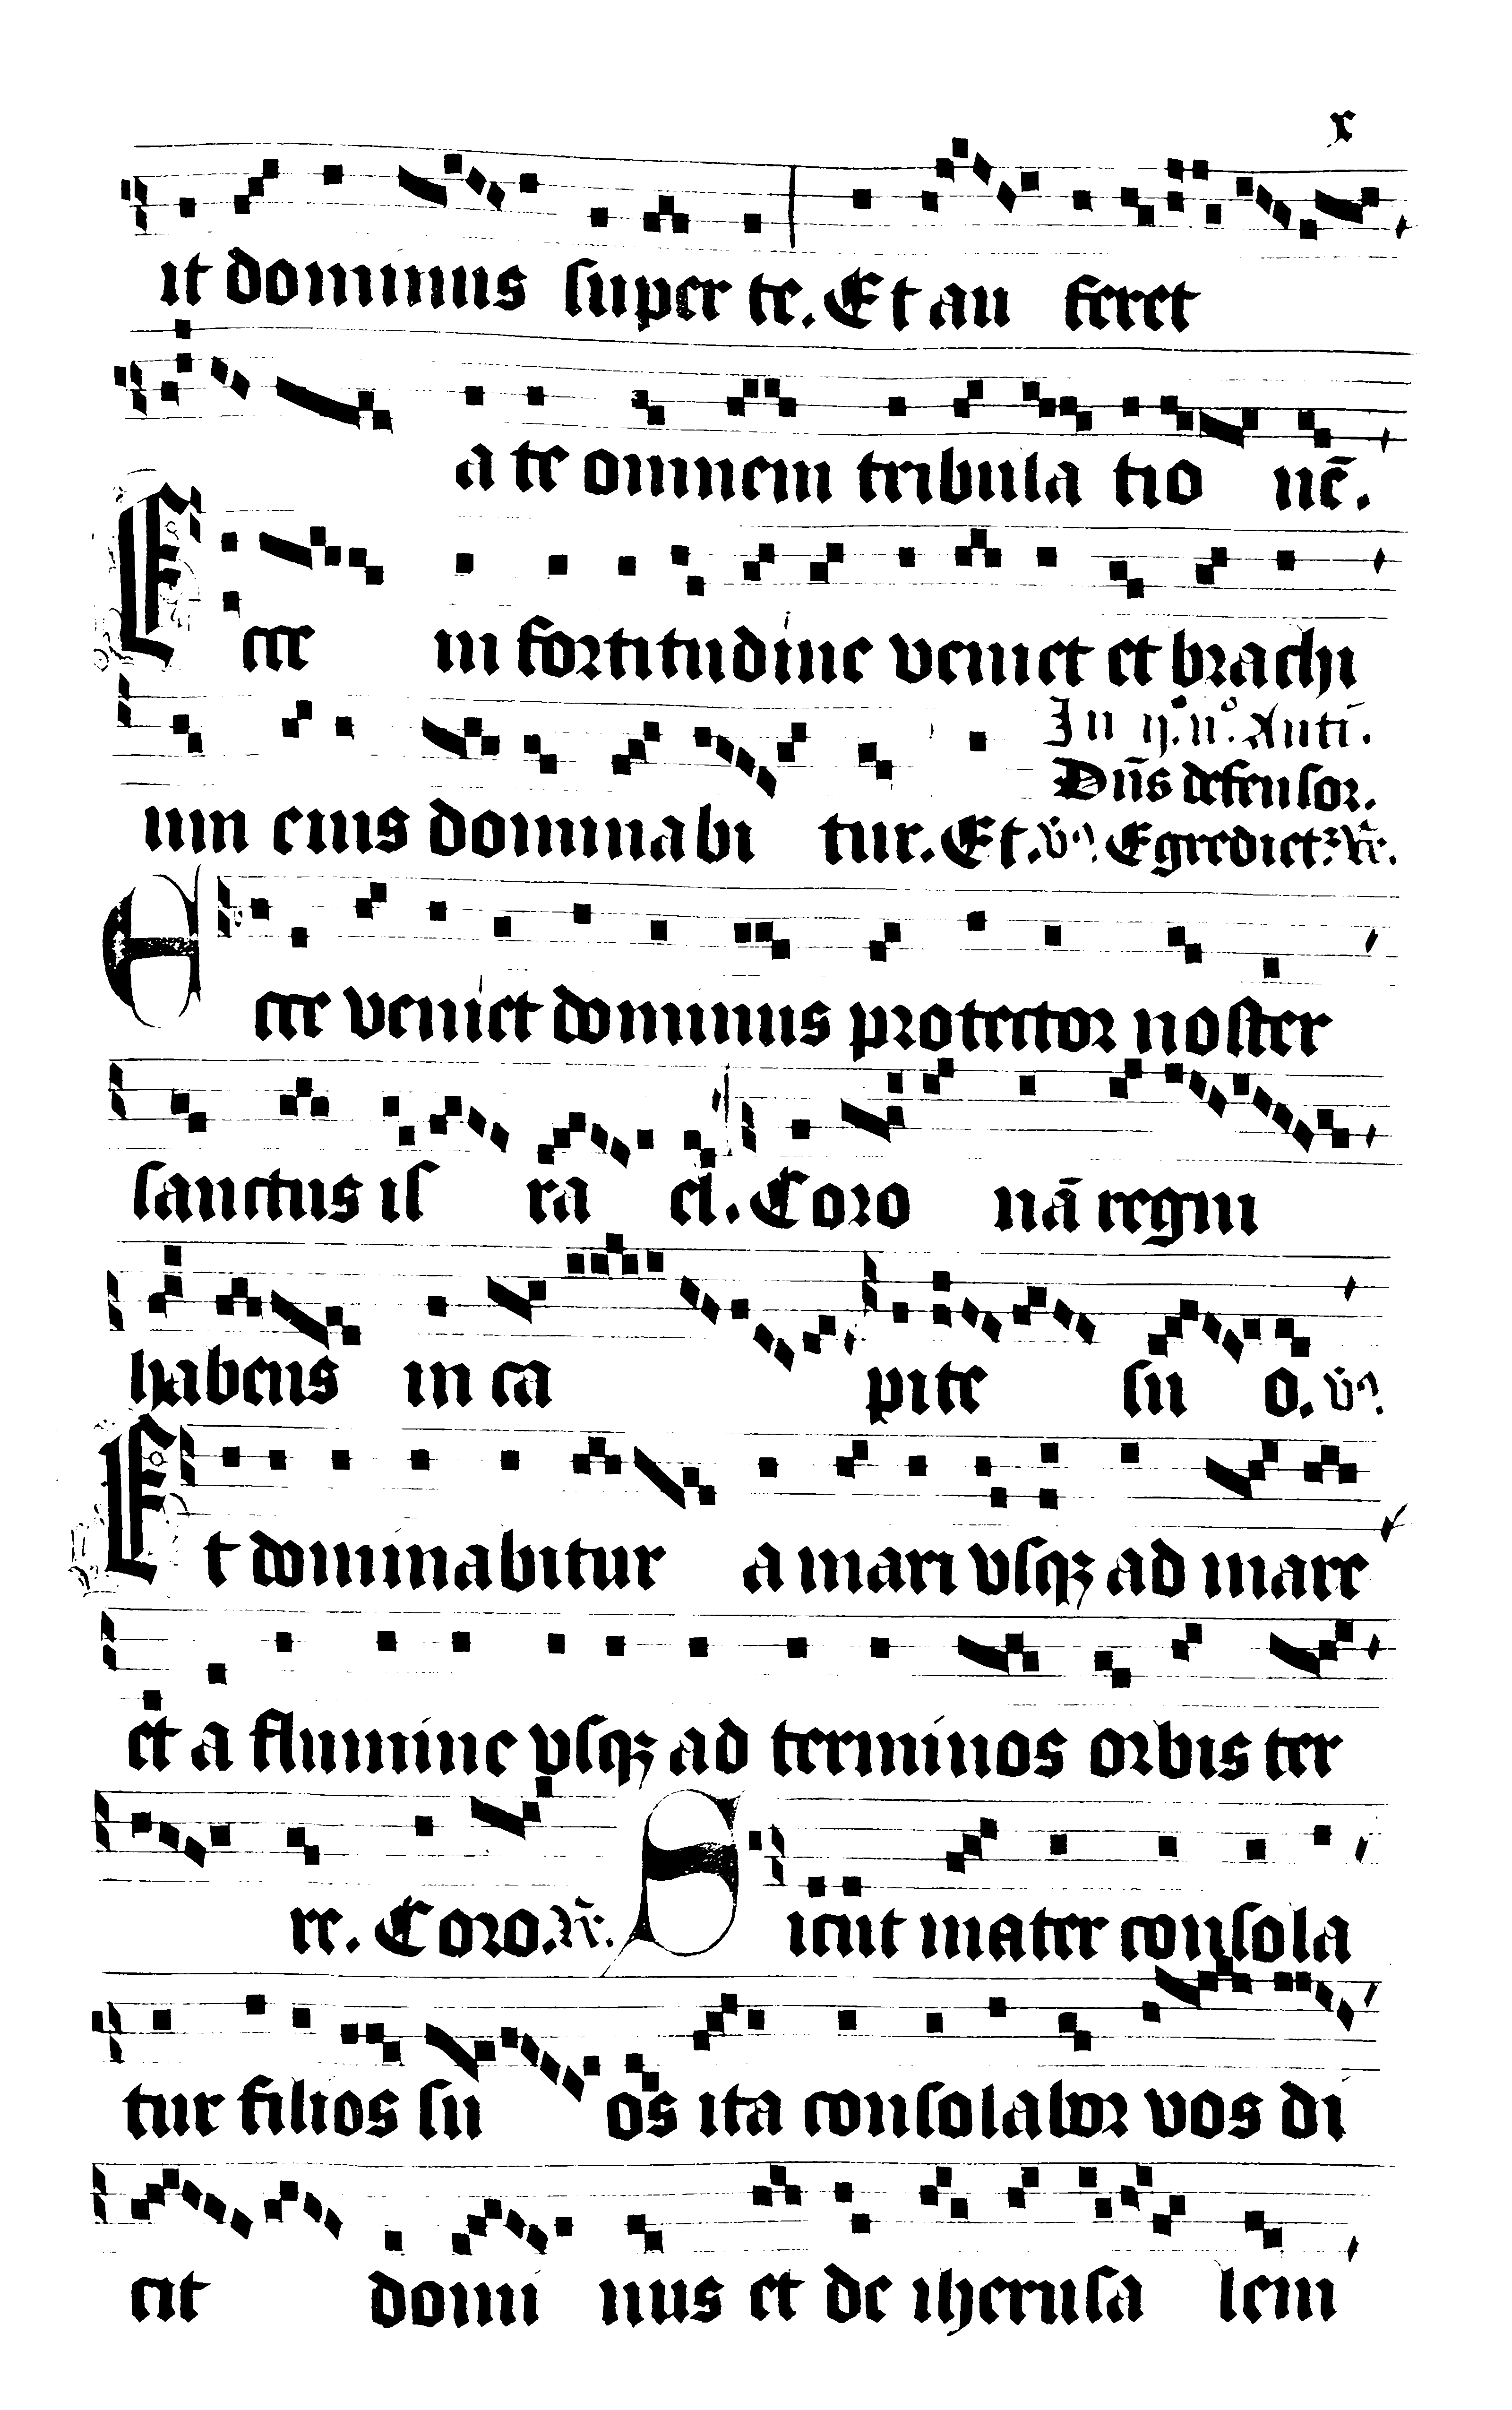 x
it dominus super te. Et au feret
a te omnem tribula tio nē.
Ecce in fortitudine veniet et brachi
In ij.º n.º Anti.
Dn̄s defensor.
um eius dominabi tur. Et. v̄. Egrediet². R̄.
Ecce veniet dominus protector noster
sanctus is ra el. Coro nā regni
habens in ca pite su o. v̄.
Et dominabitur a mari vsqꝫ ad mare
et a flumine vsqꝫ ad terminos orbis ter
re. Coro. R̄. Sicut mater consola
tur filios su os ita consolabor vos di
cit domi nus et de iherusa lem